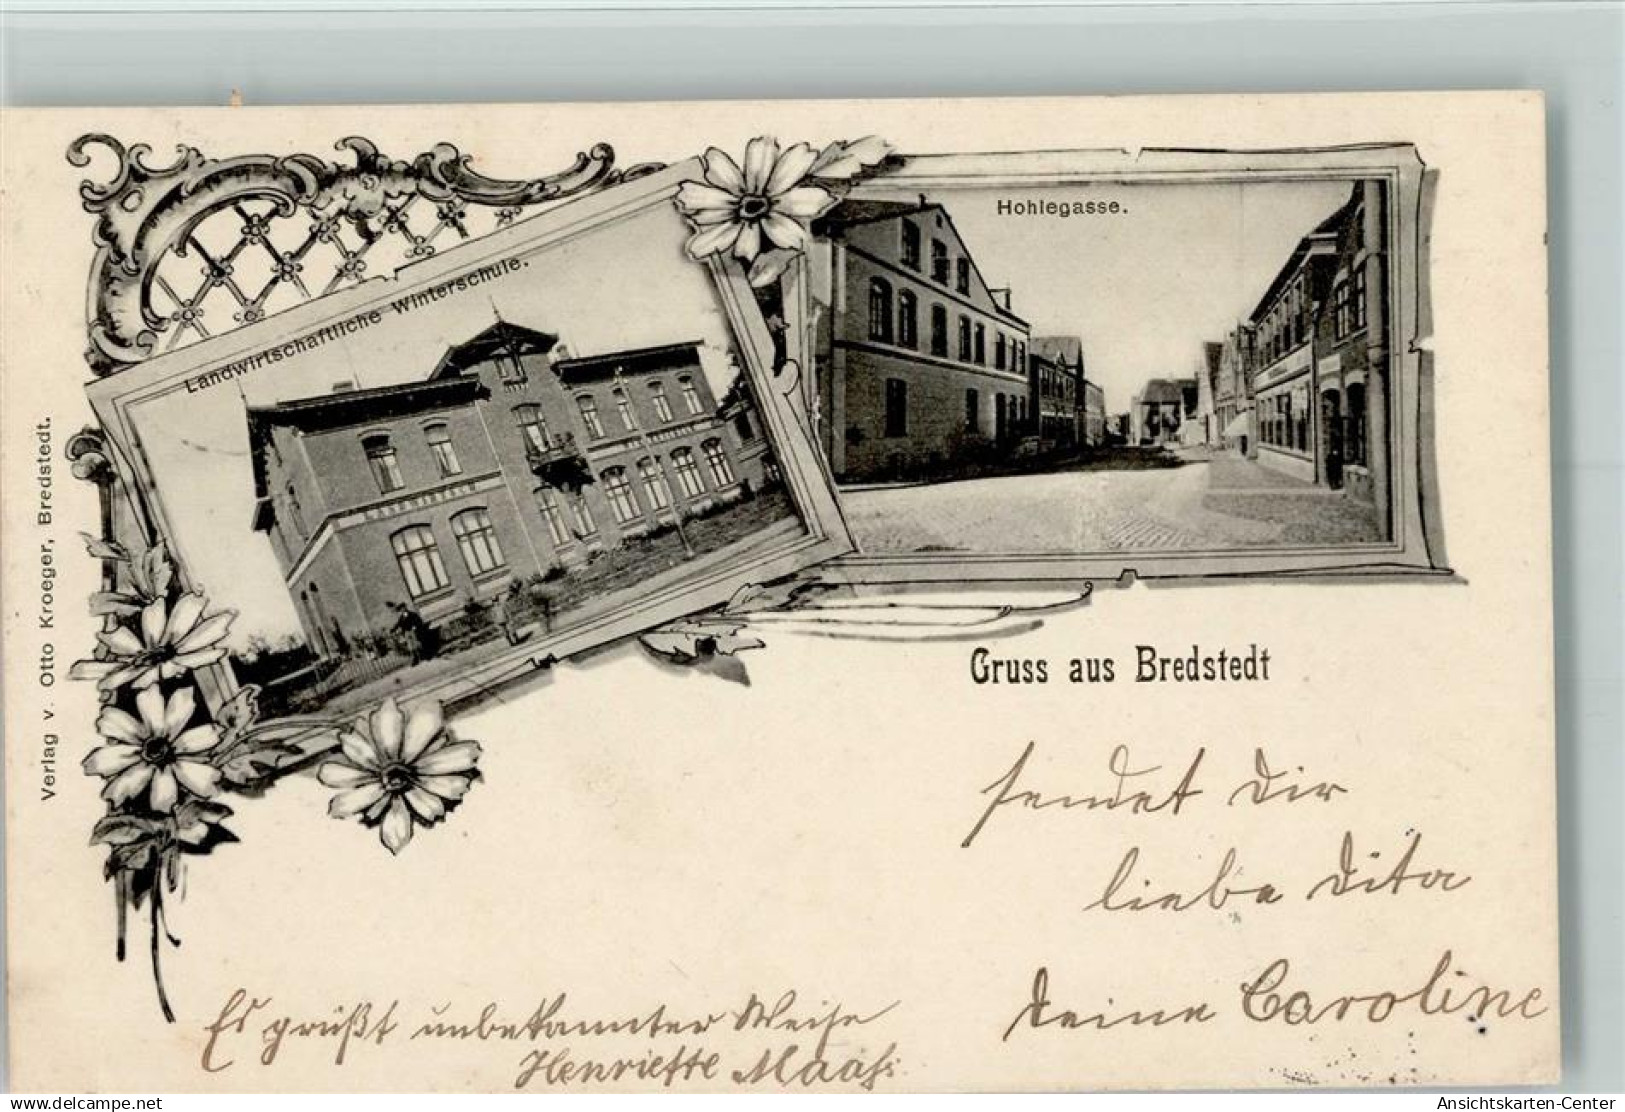 Landwirtschaftliche Winterschule.
Hohlegasse.
Verlag v. Otto Kroeger, Bredstedt.
Gruss aus Bredstedt
sendet Dir
liebe Dita
Deine Caroline
Es grüßt unbekannter Weise
Henriette Maaß.
www.delcampe.net
Ansichtskarten-Center